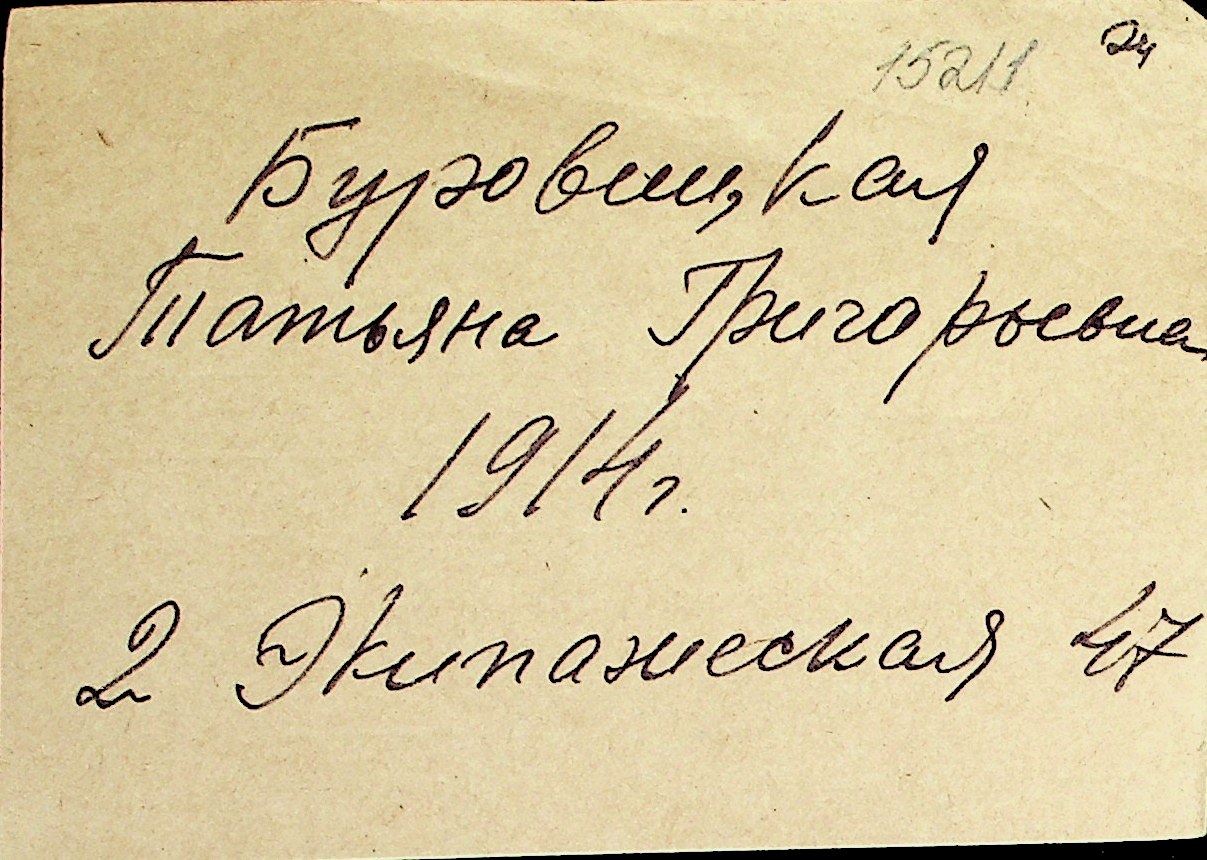 152/1 24
Буровицкая
Татьяна Григорьевна
1914 г.
2 Экипажеская 47